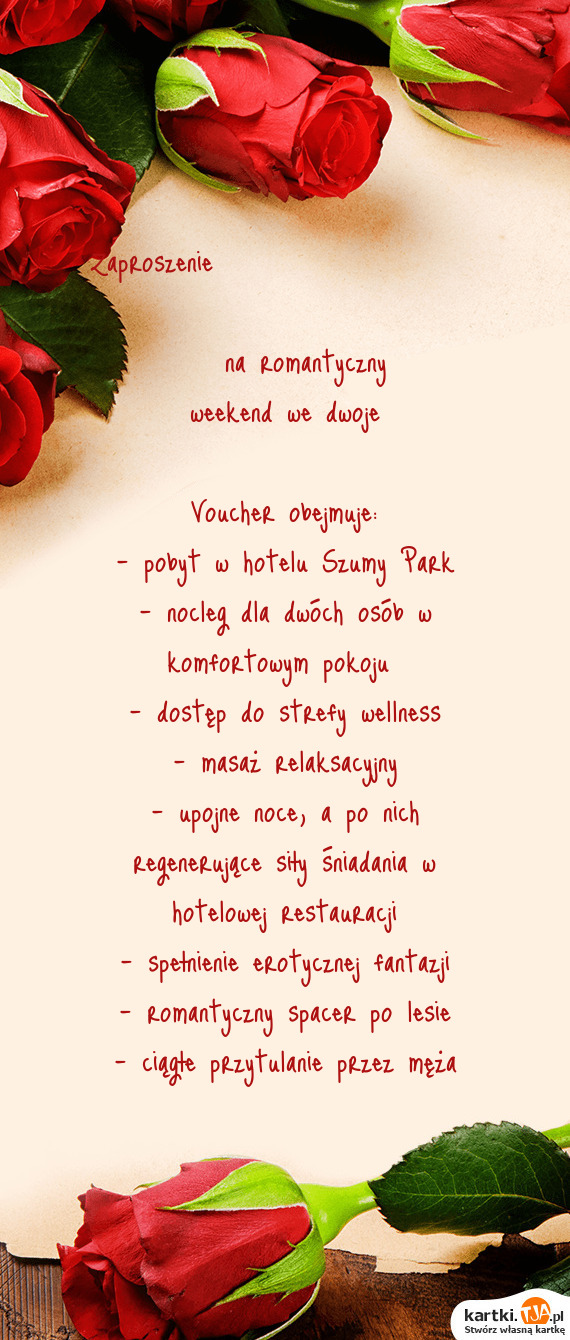 Zaproszenie
na romantyczny
weekend we dwoje
Voucher obejmuje:
- pobyt w hotelu Szumy Park
- nocleg dla dwóch osób w
komfortowym pokoju
- dostęp do strefy wellness
- masaż relaksacyjny
- upojne noce, a po nich
regenerujące siły śniadania w
hotelowej restauracji
- spełnienie erotycznej fantazji
- romantyczny spacer po lesie
- ciągłe przytulanie przez męża
kartki.TJA.pl
Stwórz własną kartkę